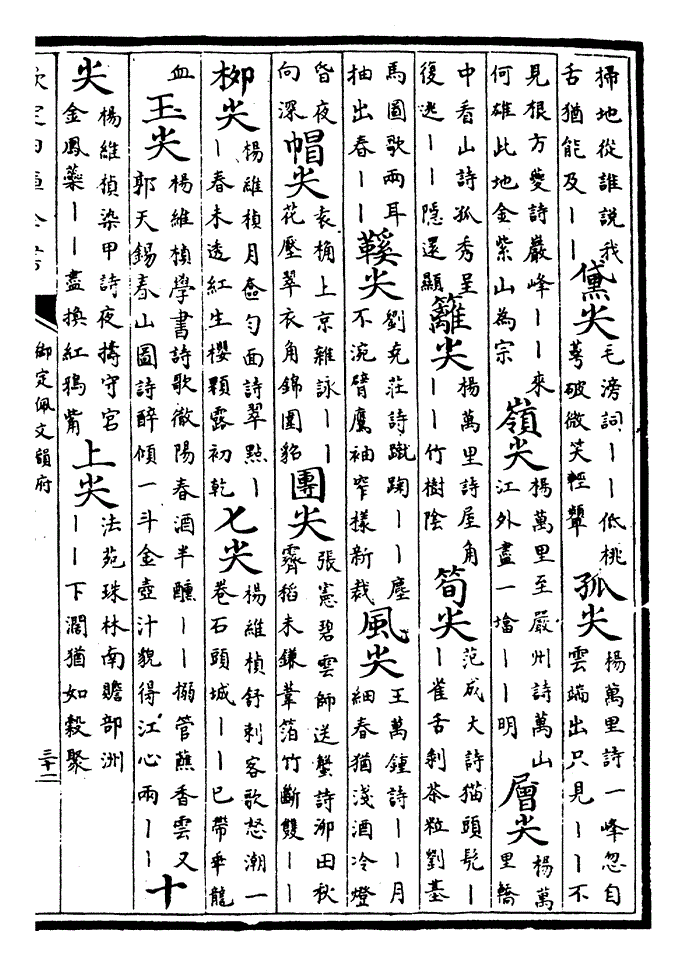 掃地從誰說我
舌猶能及丨丨
黛尖
毛滂詞丨丨低桃
萼破微笑輕顰
孤尖
楊萬里詩一峰忽自
雲端出只見丨丨不
見根方夔詩巖峰丨丨來
何雄此地金紫山為宗
嶺尖
楊萬里至嚴州詩萬山
江外盡一壋丨丨明
層尖
楊萬
里轎
中看山詩孤秀呈
復逃丨丨隱還顯
籬尖
楊萬里詩屋角
丨丨竹樹陰
筍尖
范成大詩猫頭髡丨
丨雀舌剝茶粒劉基
馬圖歌兩耳
抽出春丨丨
鞵尖
劉克莊詩蹴踘丨丨塵
不涴臂鷹袖窄樣新裁
風尖
王萬鍾詩丨丨月
細春猶淺酒冷燈
昏夜
向深
帽尖
袁桷上京雜詠丨丨
花壓翠衣角錦圍貂
團尖
張憲碧雲師送蟹詩泖田秋
霽稻未鎌葦箔竹斷雙丨丨
柳尖
楊維楨月奩匀面詩翠點丨
丨春未透紅生櫻顆露初乾
七尖
楊維楨舒刺客歌怒潮一
卷石頭城丨丨已帶乖龍
血
玉尖
楊維楨學書詩歌徹陽春酒半醺丨丨搦管蘸香雲又
郭天錫春山圖詩醉傾一斗金壺汁貌得江心兩丨丨
十
尖
楊維楨染甲詩夜擣守宮
金鳳蘂丨丨盡換紅鴉觜
上尖
法苑珠林南贍部洲
丨丨下濶猶如穀聚
欽定四庫全書
御定佩文韻府
三十二